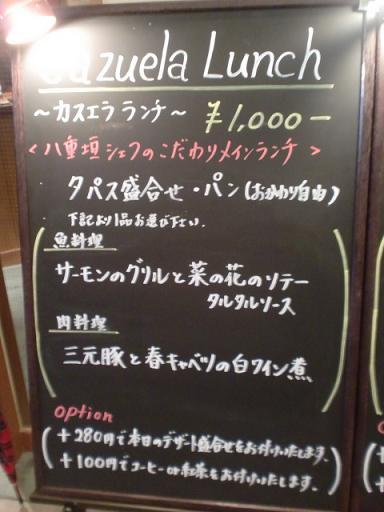 Cazuela Lunch
～カスエラランチ～ ¥1,000－
＜八重垣シェフのこだわりメインランチ＞
タパス盛合せ・パン(おかわり自由)
下記より1品お選び下さい。
魚料理
サーモンのグリルと菜の花のソテー
タルタルソース
肉料理
三元豚と春キャベツの白ワイン煮
option
+280円で本日のデザート盛合せをお付けいたします。
+100円でコーヒーor紅茶をお付けいたします。